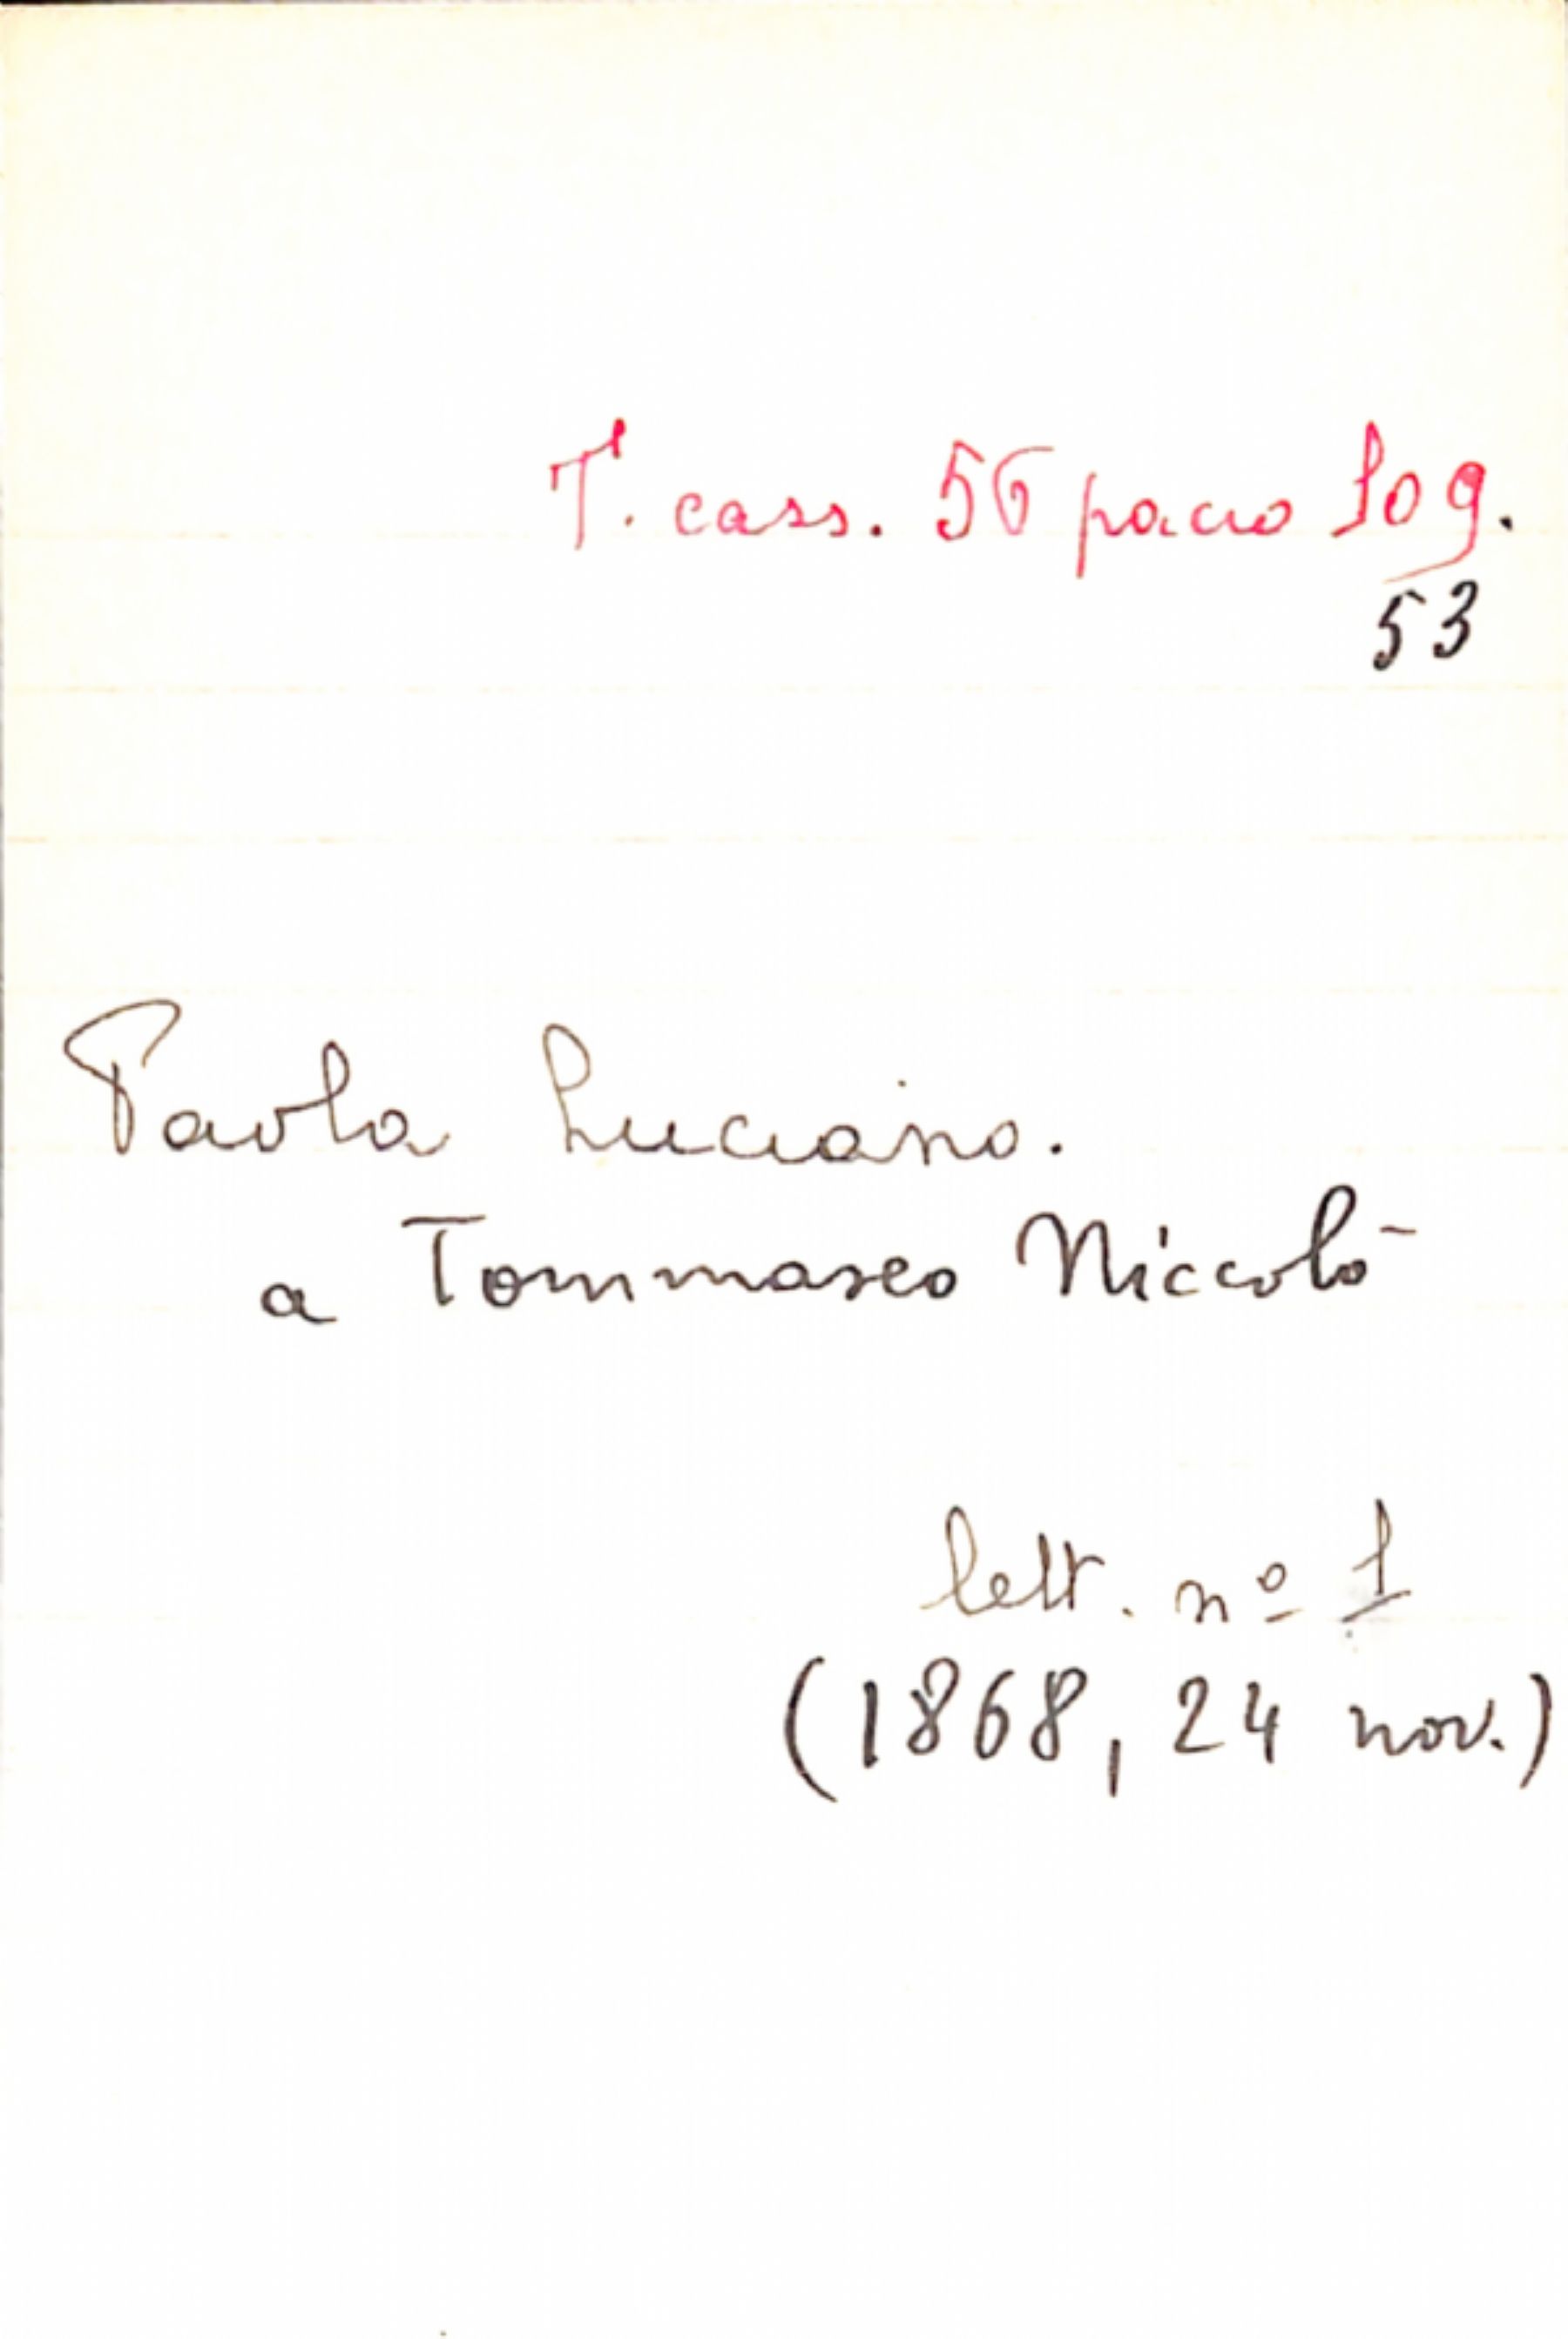 T. cass. 56 pacco 109.
53
Paola Luciano.
a Tommaseo Niccolò
lett. nº 1
(1868, 24 nov.)